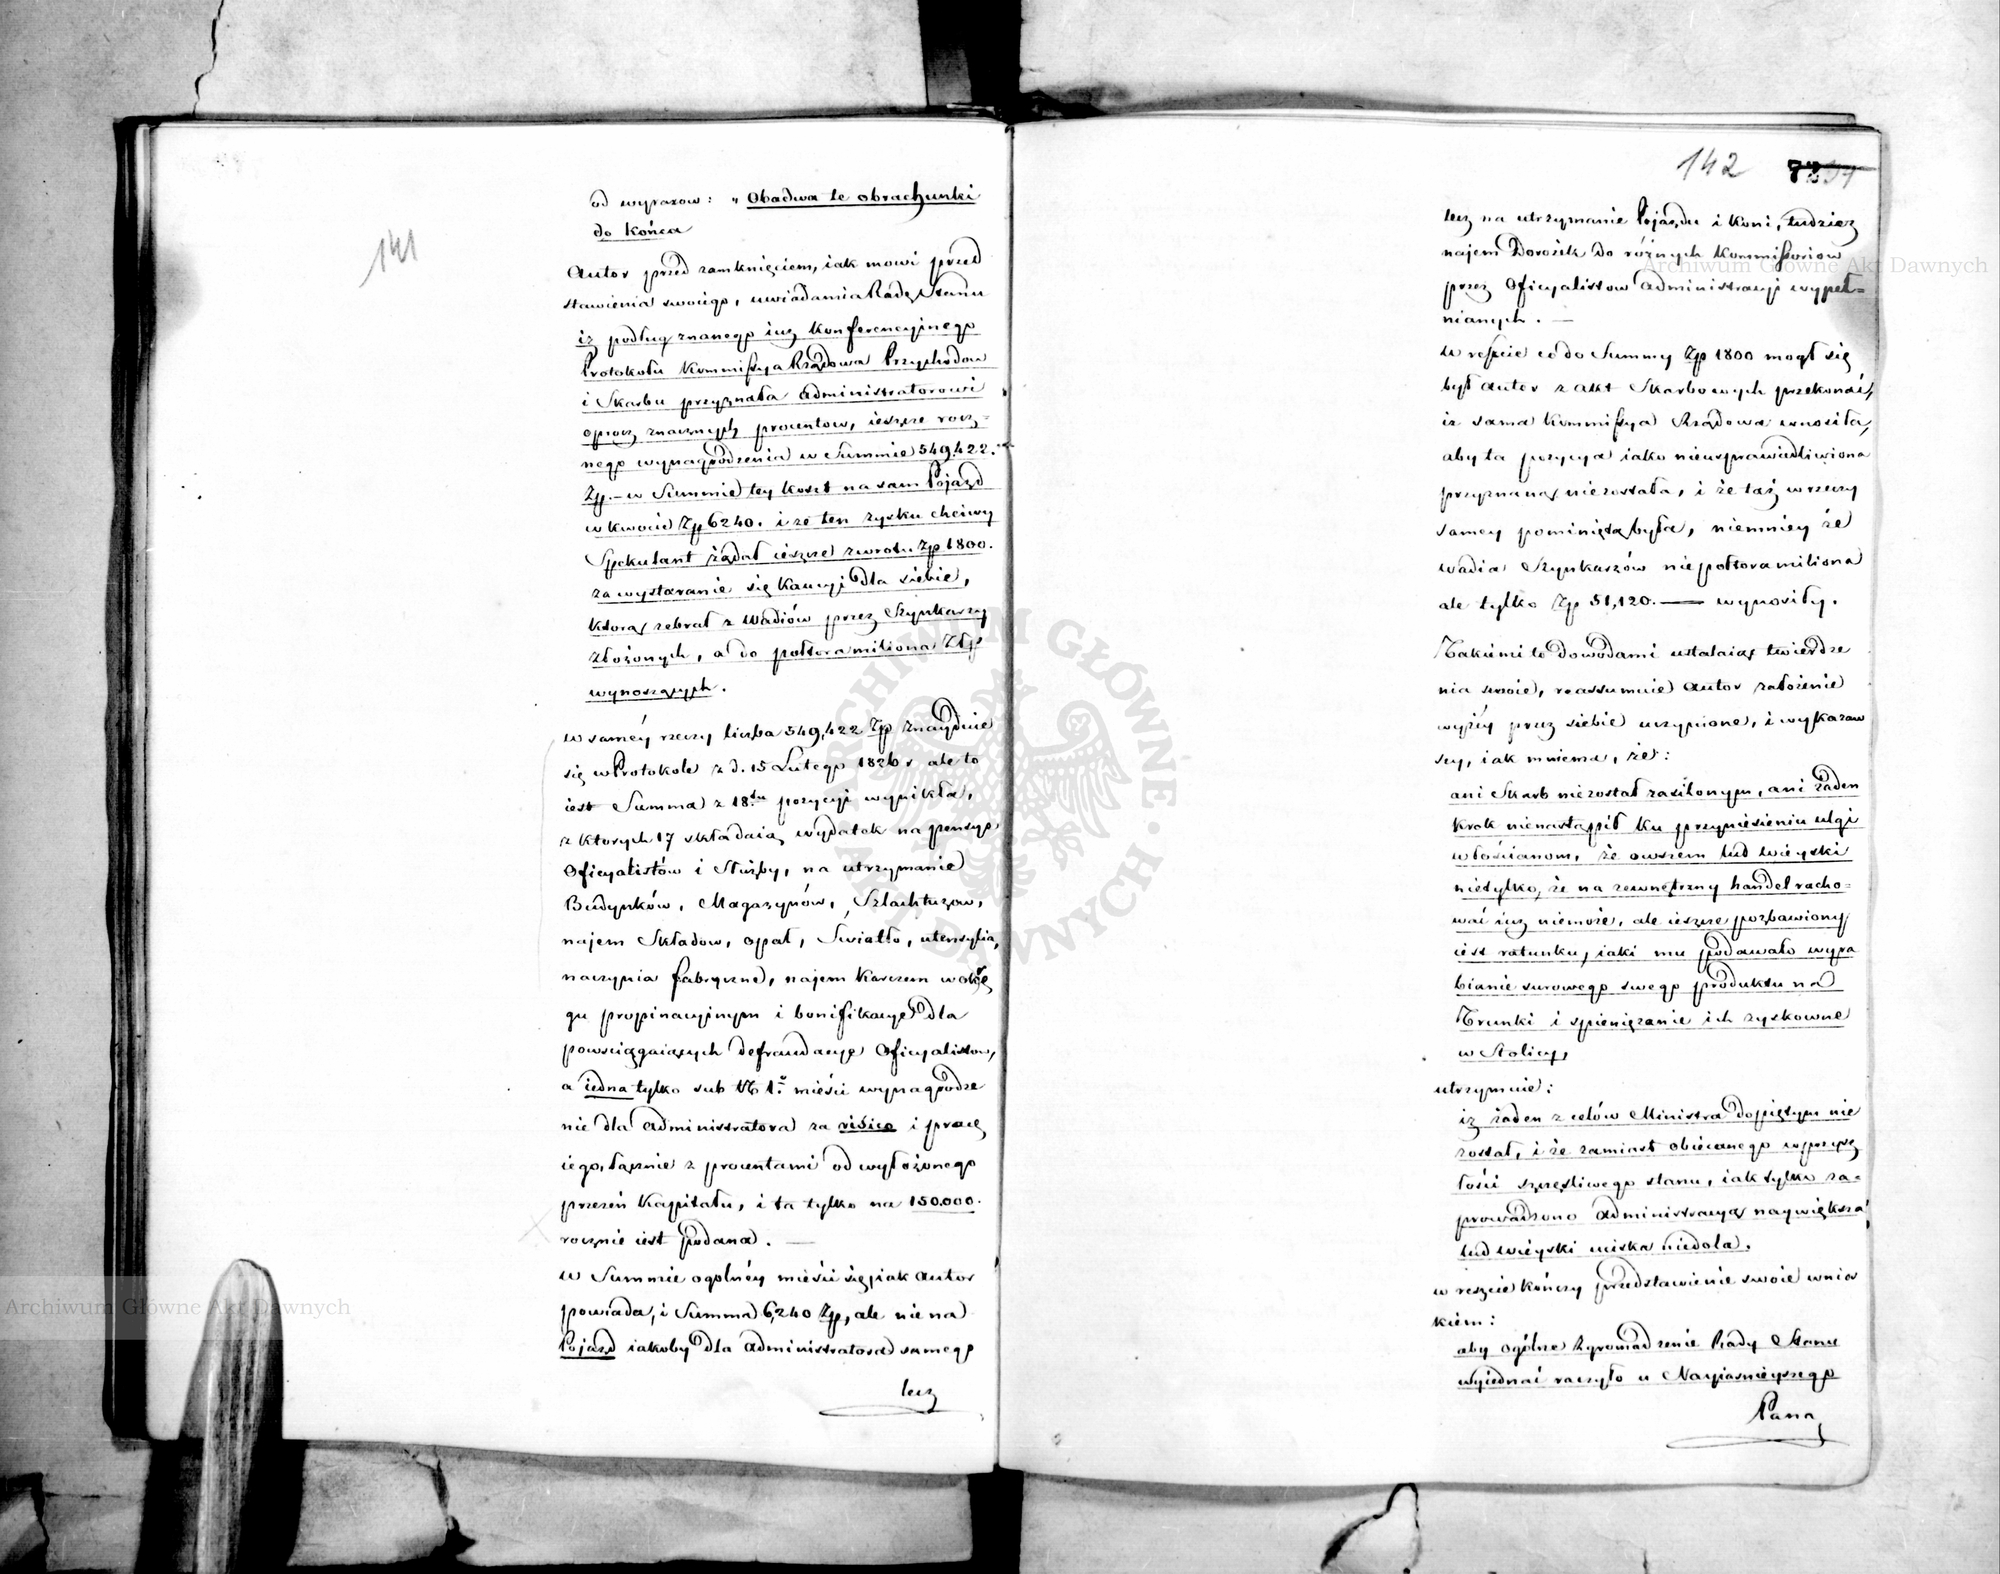 141
od wyrazow: „ Obadwa te obrachunki
do końca
Autor przed zamknięciem, iak mowi przed
stawienia swoiego, uwiadamia Radę Stanu
iż podług znanego iuż Konferencyinego
Protokołu Kommissya Rządowa Przychodow
i Skarbu przyznała Administratorowi
oprocz znacznych procentow, ieszcze rocz=
nego wynagrodzenia w Summie 549,422.
Zp. – w Summie tey koszt na sam Pojazd
w kwocie Zp 6240. i że ten zysku chciwy
Spekulant żądał ieszcze zwrotu Zp 1800.
za wystaranie się Kaucyi dla siebie,
ktorą zebrał z Wadiów przez Szynkarzy
złożonych, a do połtora miliona Złp
wynoszących.
W saméy rzeczy liczba 549,422 Zp znayduie
się w Protokole z d. 15 Lutego 1826 r ale to
iest Summa z 18tu pozycyi wynikła,
z ktorych 17 składaią wydatek na pensye
Oficyalistów i Służby, na utrzymanie
Budynków, Magazynów, Szlachtuzow,
najem Składow, opał, Swiatło, utensylia,
naczynia fabryczne, najem Karczem w okrę
gu propinacyinym i bonifikacye dla
powsciągaiących defraudacye Oficyalistow,
a iedna tylko sub № 1. mieści wynagrodze
nie dla Administratora za risico i pracę
iego, łącznie z procentami od wyłożonego
przezeń Kapitału, i ta tylko na 150.000.
rocznie iest podana. —
W Summie ogolnéy mieści się, iak Autor
powiada, i Summa 6,240 Zp, ale nie na
Pojazd iakoby dla Administratora samego
lecz
142
lecz na utrzymanie Pojazdu i Koni, tudzież
najem Dorożek do różnych Kommissoriow
przez Oficyalistow Administracyi wypeł=
nianych. —
W reszcie co do Summy Zp 1800 mogł się
był Autor z akt Skarbowych przekonać,
iż sama Kommissya Rządowa wnosiła,
aby ta pozycya iako nieusprawiedliwiona
przyznaną niezostała, i że taż w rzeczy
samey pominiętą była, niemniey że
wadia Szynkarzów nie połtora miliona
ale tylko Zp 51,120. — wynosiły.
Takiemi to dowodami ustalaiąc twierdze
nia swoie, reassumuie Autor założenie
wyżéy przez siebie uczynione, i wykazaw
szy, iak mniema, że:
ani Skarb niezostał zasilonym, ani żaden
krok nienastąpił ku przyniesieniu ulgi
włościanom, że owszem lud wieyski
nietylko, że na zewnętrzny handel racho=
wać iuż niemoże, ale ieszcze pozbawiony
iest ratunku, iaki mu podawało wyra
bianie surowego swego produktu na
Trunki i spieniężanie ich zyskowne
w Stolicy,
utrzymuie:
iż żaden z celów Ministra dopiętym nie
został, i że zamiast obiecanego w przysz
łości szczęśliwego stanu, iak tylko za=
prowadzono Administracyą naywiększa
lud wieyski uciska niedola.
w reszcie kończy przedstawienie swoie wnios
kiem:
aby ogólne Zgromadzenie Rady Stanu
wyiednać raczyło u Nayiaśnieyszego
Pana